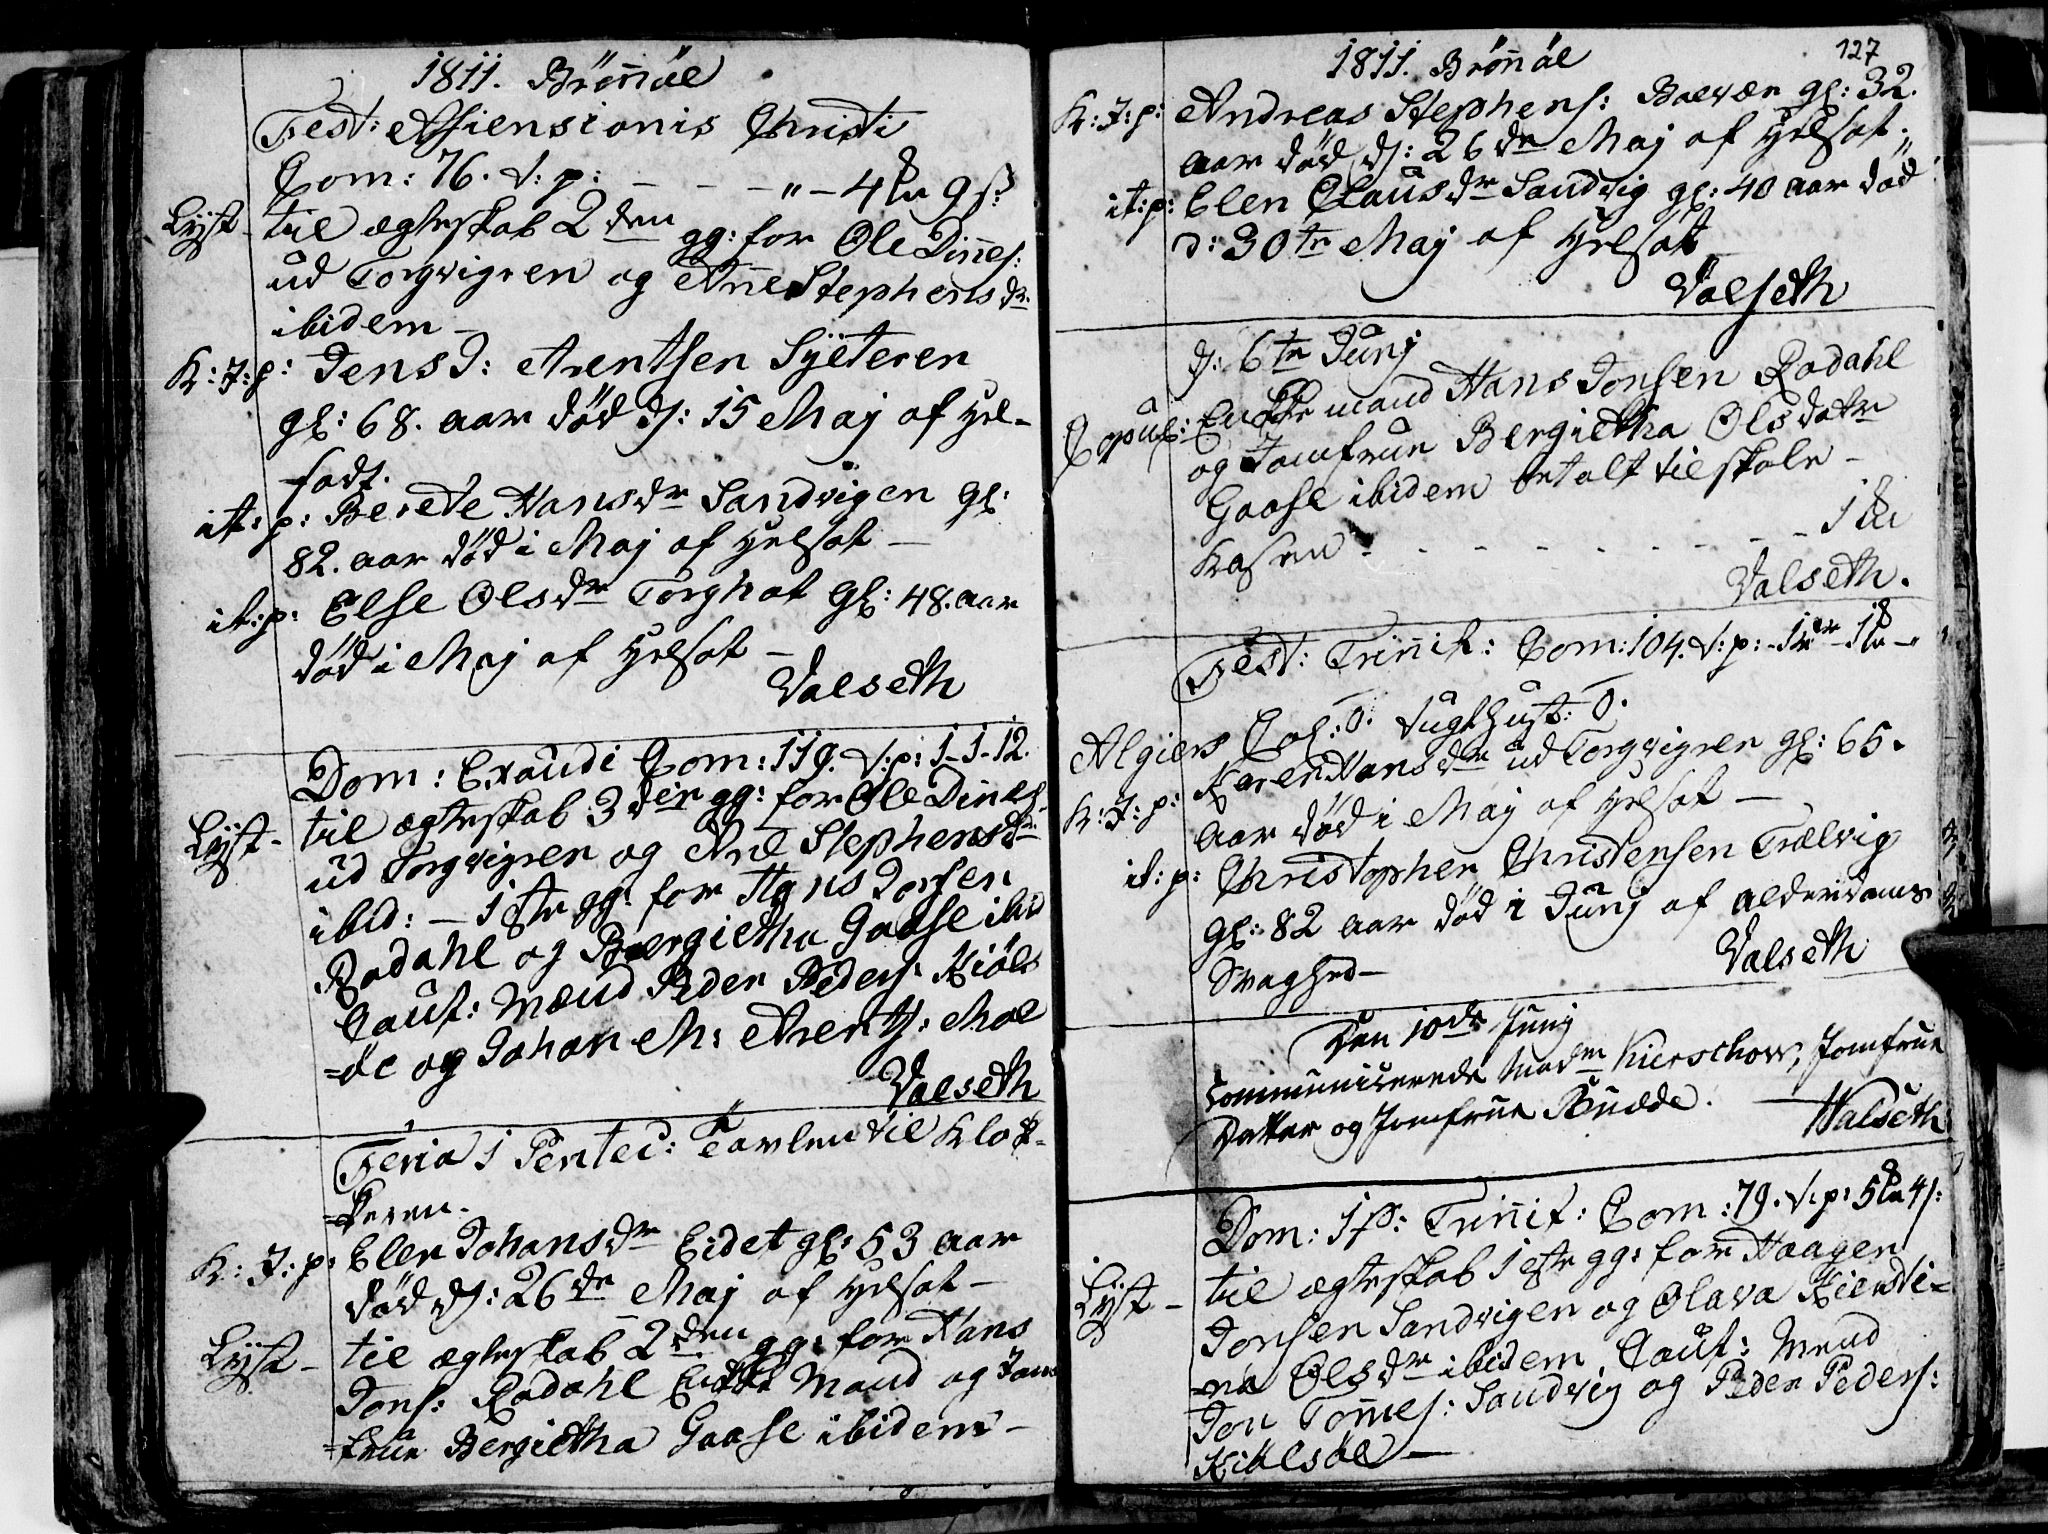 1811. Brönnöe
Fest: Assensionis Christi
Com: 76. t: p: - - - " - 4 9 ß:
Lyst - til ægteskab 2den gg: for Ole Dines:
ud Torgvigen og Anne Stephensdr
ibidem -
K: J: p: Jens J: Arentsen Syeteren
gl: 68. aar død d: 15 Maj af Hel-
sodt.
it: p: Berete Hansdr Sandvigen gl:
82. aar død i Maj af Helsot -
it: p: Else Olsdr Torghat gl: 48. aar
død i Maj af Helsot -
Valseth
Dom: Exaudi Com: 119. t: p: 1-1-12.
Lyst - til ægteskab 3die gg: for Ole Dines:
ud Torgvigen og Ane Stephensdr
ibid: - 1ste gg: for Hans Jonsen
Rodahl og Bergietha Gaase ibid
Cauf: Mænd Peder Peders: Kiöls
=öe og Johan M: Arents: Moe
Valseth
Feria 1 Pentec: Tavlen til Klok-
=keren.
K: J: p: Elen Johansdr Eidet gl: 53 aar
død d: 26de Maj af Helsot -
Lyst - til ægteskab 2den gg: for Hans
Jons: Rodahl Enkke Mand og Jom
=frue Bergietha Gaase ibidem -
127
1811. Brönnöe
K: J: p: Andreas Stephens: Boevær gl: 32.
aar död d: 26de Maj af Helsot;
it: p: Elen Clausdr Sandvig gl: 40 aar död
d: 30te Maj af Helsot
Valseth
d: 6te Junj
Copul: Enkkemand Hans Jonsen Rodahl
og Jomfrue Bergietha Olsdatr
Gaase ibidem betalt til skole -
Kasen - - - - - - - - 1
Valseth.
Fest: Trinnit: Com: 104. t: p: -
Algiers Col: 0. Tugthust: 0.
K: J: p: Karen Hansdr ud Torgvigen gl: 65.
aar død i Maj af Helsot -
it: p: Christopher Christensen Trælvig
gl: 82 aar död i Junj af alderdoms
Svaghed -
Valseth
Den 10de Junij
Communiserede Madm Kierschow, Jomfrue
Datter og Jomfrue Buæde.
Walseth
Dom: 1 p: Trinnit: Com: 79. t: p: 5 4 s:
Lyst - til ægteskab 1ste gg: for Haagen
Jonsen Sandvigen og Olava Kiersti=
=na Olsdr ibidem, Cauf: Mænd
Jon Tomes: Sandvig og Peder Peders:
Kiölsöe -